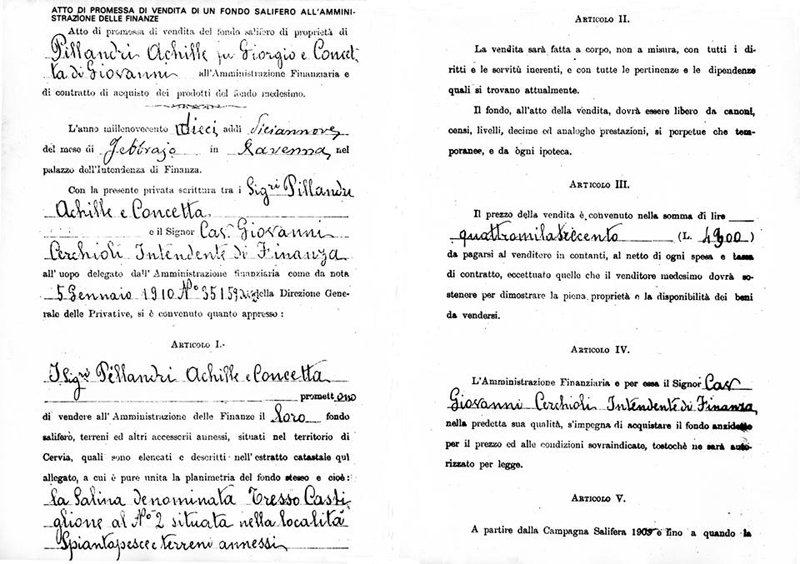 ATTO DI PROMESSA DI VENDITA DI UN FONDO SALIFERO ALL'AMMINI-
STRAZIONE DELLE FINANZE
Atto di promessa di vendita del fondo salifero di proprietà di
Pillandri Achille fu Giorgio e Concet
ta di Giovanni all'Amministrazione Finanziaria e
di contratto di acquisto dei prodotti del fondo medesimo.
L'anno millenovecento dieci, addì diciannove
del mese di Febbrajo in Ravenna, nel
palazzo dell'Intendenza di Finanza.
Con la presente privata scrittura tra i Sigri Pillandri
Achille e Concetta
e il Signor Cav. Giovanni
Cerchioli Intendente di Finanza
all'uopo delegato dall'Amministrazione finanziaria come da nota
5 Gennaio 1910 No 35159 della Direzione Gene-
rale delle Privative, si è convenuto quanto appresso:
ARTICOLO I.-
I Sigri Pillandri Achille e Concetta
promettono
di vendere all'Amministrazione delle Finanze il loro fondo
salifero, terreni ed altri accessorii annessi, situati nel territorio di
Cervia, quali sono elencati e descritti nell'estratto catastale qui
allegato, a cui è pure unita la planimetria del fondo stesso e cioè:
la Salina denominata Tresso Casti
glione al No 2 situata nella località
Spiantapesce e terreni annessi
ARTICOLO II.
La vendita sarà fatta a corpo, non a misura, con tutti i di-
ritti e le servitù inerenti, e con tutte le pertinenze e le dipendenze
quali si trovano attualmente.
Il fondo, all'atto della vendita, dovrà essere libero da canoni,
censi, livelli, decime ed analoghe prestazioni, si perpetue che tem-
poranee, e da ogni ipoteca.
ARTICOLO III.
Il prezzo della vendita è convenuto nella somma di lire
quattromilatrecento (L. 4300)
da pagarsi al venditore in contanti, al netto di ogni spesa e tassa
di contratto, eccettuato quello che il venditore medesimo dovrà so-
stenere per dimostrare la piena proprietà e la disponibilità dei beni
da vendersi.
ARTICOLO IV.
L'Amministrazione Finanziaria e per essa il Signor Cav
Giovanni Cerchioli Intendente di Finanza
nella predetta sua qualità, s'impegna di acquistare il fondo anzidetto
per il prezzo ed alle condizioni sovraindicate, tostochè ne sarà auto-
rizzato per legge.
ARTICOLO V.
A partire dalla Campagna Salifera 1909 e fino a quando la